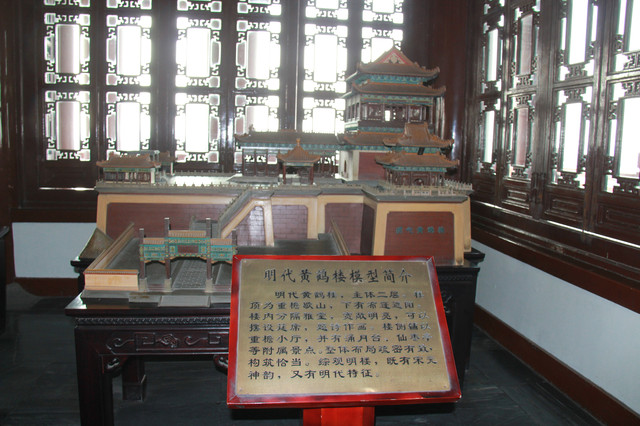 明代黄鹤楼模型简介
明代黄鹤楼，主体二层，
顶为重檐歇山，下有布蓬遮阳
楼内分隔雅室，宽敞明亮，可以
摆设延席，题诗作画。楼侧
重檐小厅，并有涌月台，仙枣
等附属景点。整体布局疏密有致，
构筑恰当。综观明楼，既有宋元
神韵，又有明代特征。